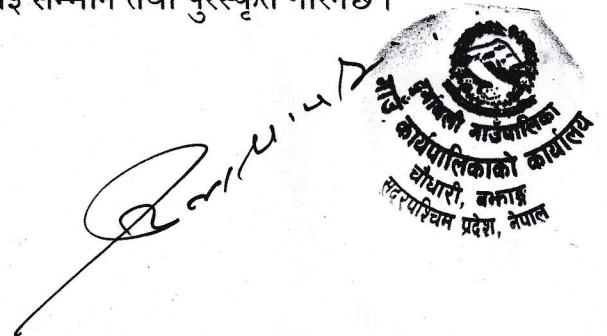 सम्मान तथा पुरस्कृत गरिनेछ ।
दुर्गाथली गाउँपालिका
गाउँ कार्यपालिकाको कार्यालय
चौधारी, बझाङ्ग
सुदूरपश्चिम प्रदेश, नेपाल